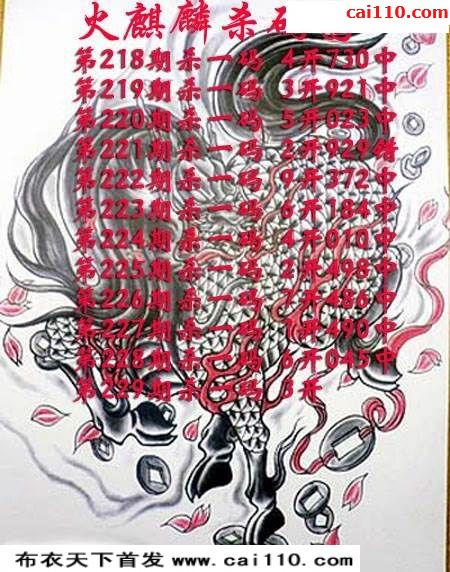 cai110.com
火麒麟杀码
第218期杀一码 4开730中
第219期杀一码 3开921中
第220期杀一码 5开023中
第221期杀一码 2开929错
第222期杀一码 9开372中
第223期杀一码 6开184中
第224期杀一码 4开010中
第225期杀一码 2开498中
第226期杀一码 7开486中
第227期杀一码 1开490中
第228期杀一码 6开045中
第229期杀一码 3开
布衣天下首发 www.cai110.com